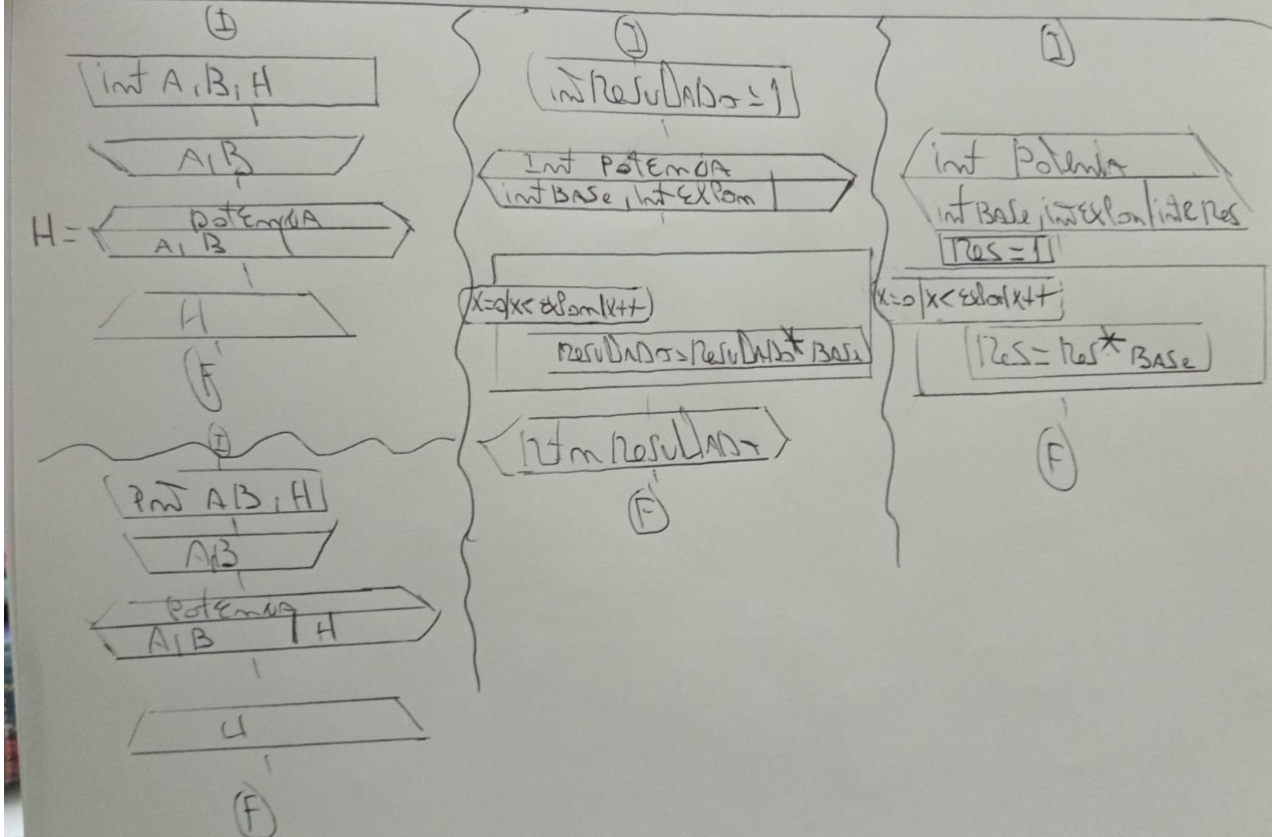 I
int A, B, H
A, B
H =
POTENCIA
A, B
H
F
I
int A, B, H
A, B
POTENCIA
A, B | H
H
F
I
int Resultado = 1
Int POTENCIA
int BASE, int EXPon |
x=0|x<expon|x++
Resultado = Resultado * BASE
Rtrn Resultado
F
I
int Potencia
int BASE, int EXPon | int & Res
Res = 1
x=0|x<expon|x++
Res = Res * BASE
F